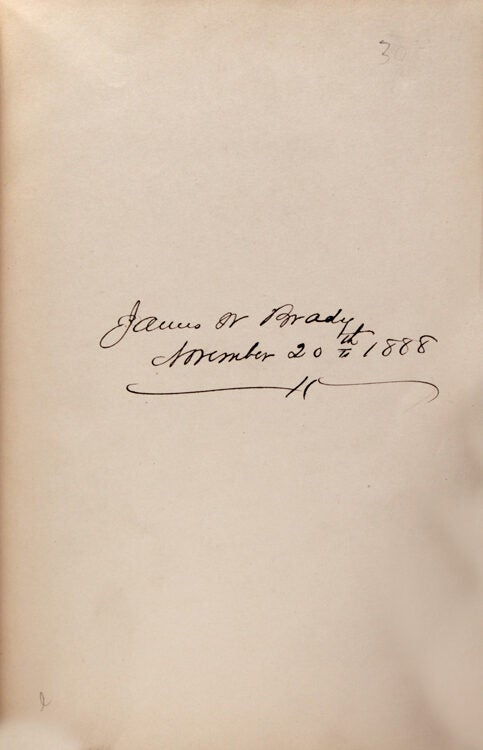 30
James W Brady
November 20th 1888